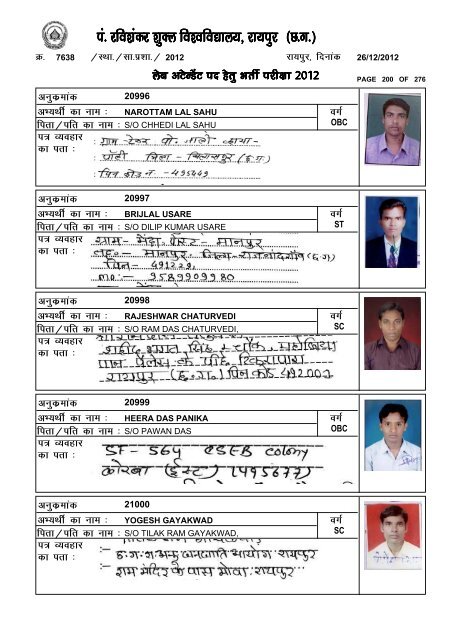 पं. रविशंकर शुक्ल विश्वविद्यालय, रायपुर (छ.ग.)
क्र. 7638 /स्था./सा.प्रशा./ 2012 रायपुर, दिनांक 26/12/2012
लेब अटेन्डेंट पद हेतु भर्ती परीक्षा 2012
PAGE 200 OF 276
अनुक्रमांक 20996
अभ्यर्थी का नाम : NAROTTAM LAL SAHU वर्ग
पिता/पति का नाम : S/O CHHEDI LAL SAHU OBC
पत्र व्यवहार
का पता :
: ग्राम
जिला - बिलासपुर (छ.ग)
: पिन कोड न. - 495449
अनुक्रमांक 20997
अभ्यर्थी का नाम : BRIJLAL USARE वर्ग
पिता/पति का नाम : S/O DILIP KUMAR USARE ST
पत्र व्यवहार ग्राम- पोस्ट- मानपुर
का पता : तह.- मानपुर, जिला- राजनांदगाँव (छ.ग)
पिन- 491229
मो.:- 9589909980
अनुक्रमांक 20998
अभ्यर्थी का नाम : RAJESHWAR CHATURVEDI वर्ग
पिता/पति का नाम : S/O RAM DAS CHATURVEDI, SC
पत्र व्यवहार
का पता : शहीद भगत सिंह चौक,
पान पैलेस के पीछे टिकरापारा
रायपुर (छ.ग.) पिन कोड 492001
अनुक्रमांक 20999
अभ्यर्थी का नाम : HEERA DAS PANIKA वर्ग
पिता/पति का नाम : S/O PAWAN DAS OBC
पत्र व्यवहार
का पता : ST - 564 CSEB colony
कोरबा (ईस्ट) (495677)
अनुक्रमांक 21000
अभ्यर्थी का नाम : YOGESH GAYAKWAD वर्ग
पिता/पति का नाम : S/O TILAK RAM GAYAKWAD, SC
पत्र व्यवहार
का पता : :- छ.ग. जनजाति आयोग रायपुर
:- राम मंदिर के पास मोवा रायपुर